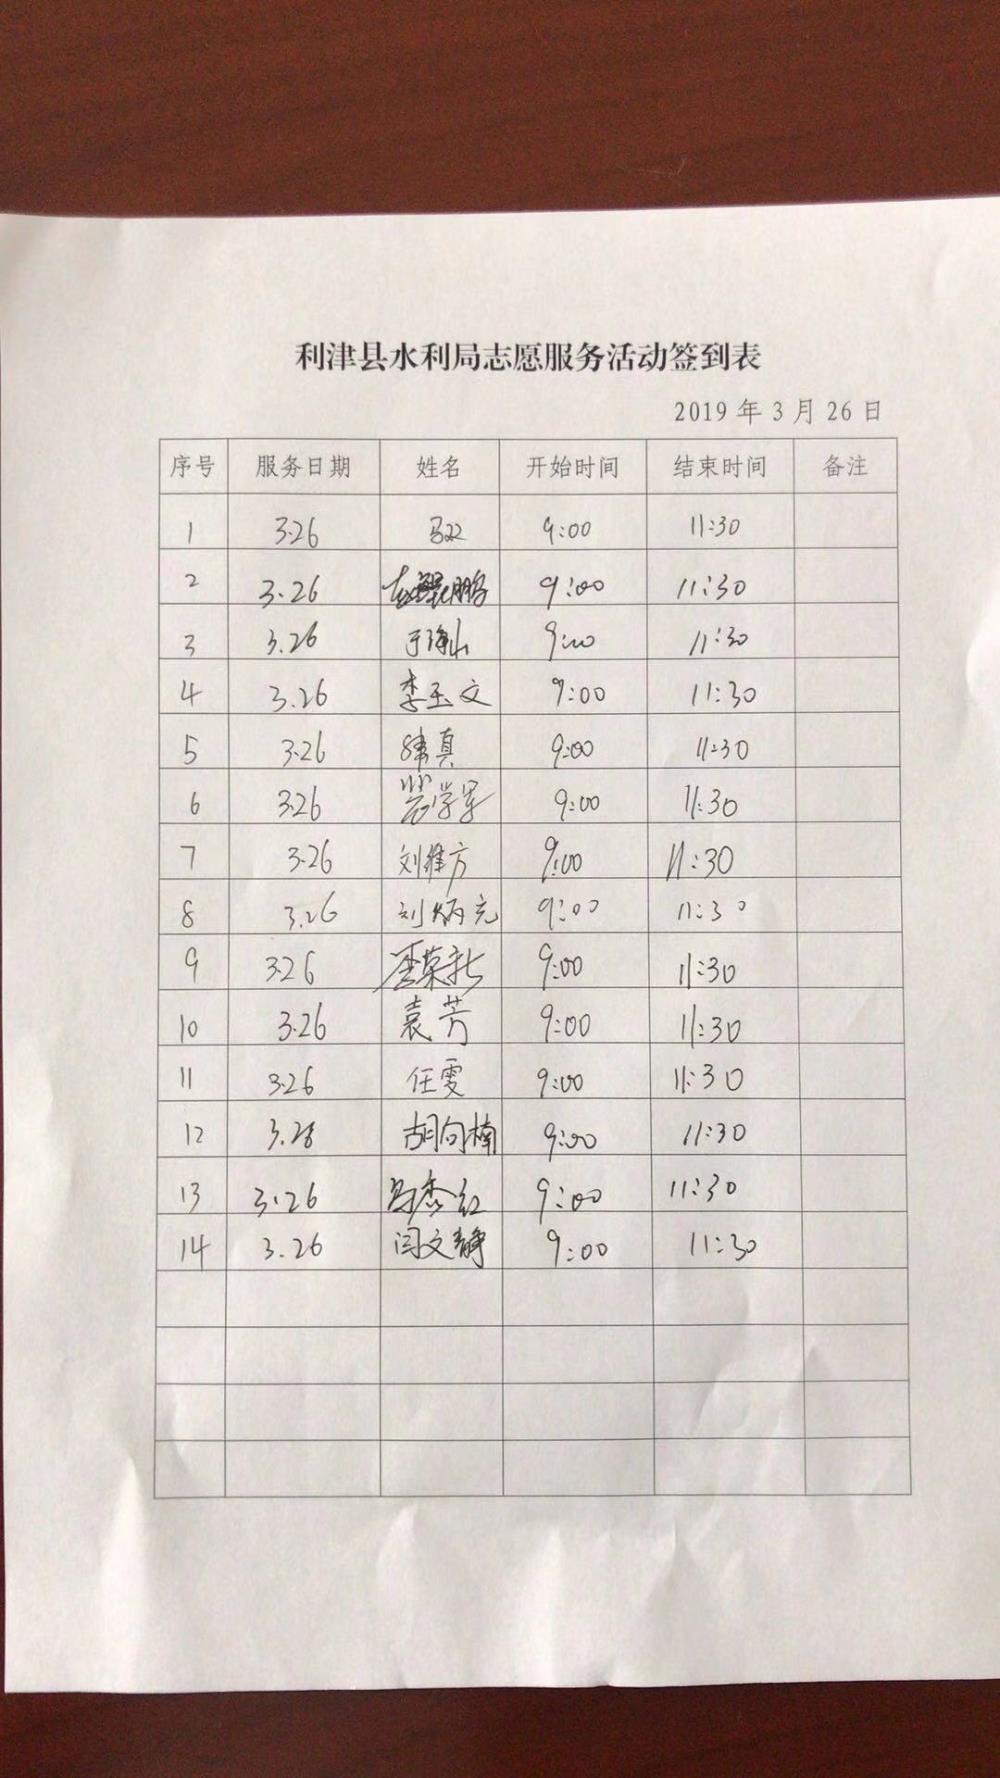 利津县水利局志愿服务活动签到表
2019年3月26日
序号 服务日期 姓名 开始时间 结束时间 备注
1 3.26 马双 9:00 11:30
2 3.26 9:00 11:30
3 3.26 于海山 9:00 11:30
4 3.26 李玉文 9:00 11:30
5 3.26 韩真 9:00 11:30
6 3.26 9:00 11:30
7 3.26 刘维方 9:00 11:30
8 3.26 刘炳克 9:00 11:30
9 3.26 9:00 11:30
10 3.26 袁芳 9:00 11:30
11 3.26 任雯 9:00 11:30
12 3.26 胡向楠 9:00 11:30
13 3.26 冯杰红 9:00 11:30
14 3.26 闫文静 9:00 11:30